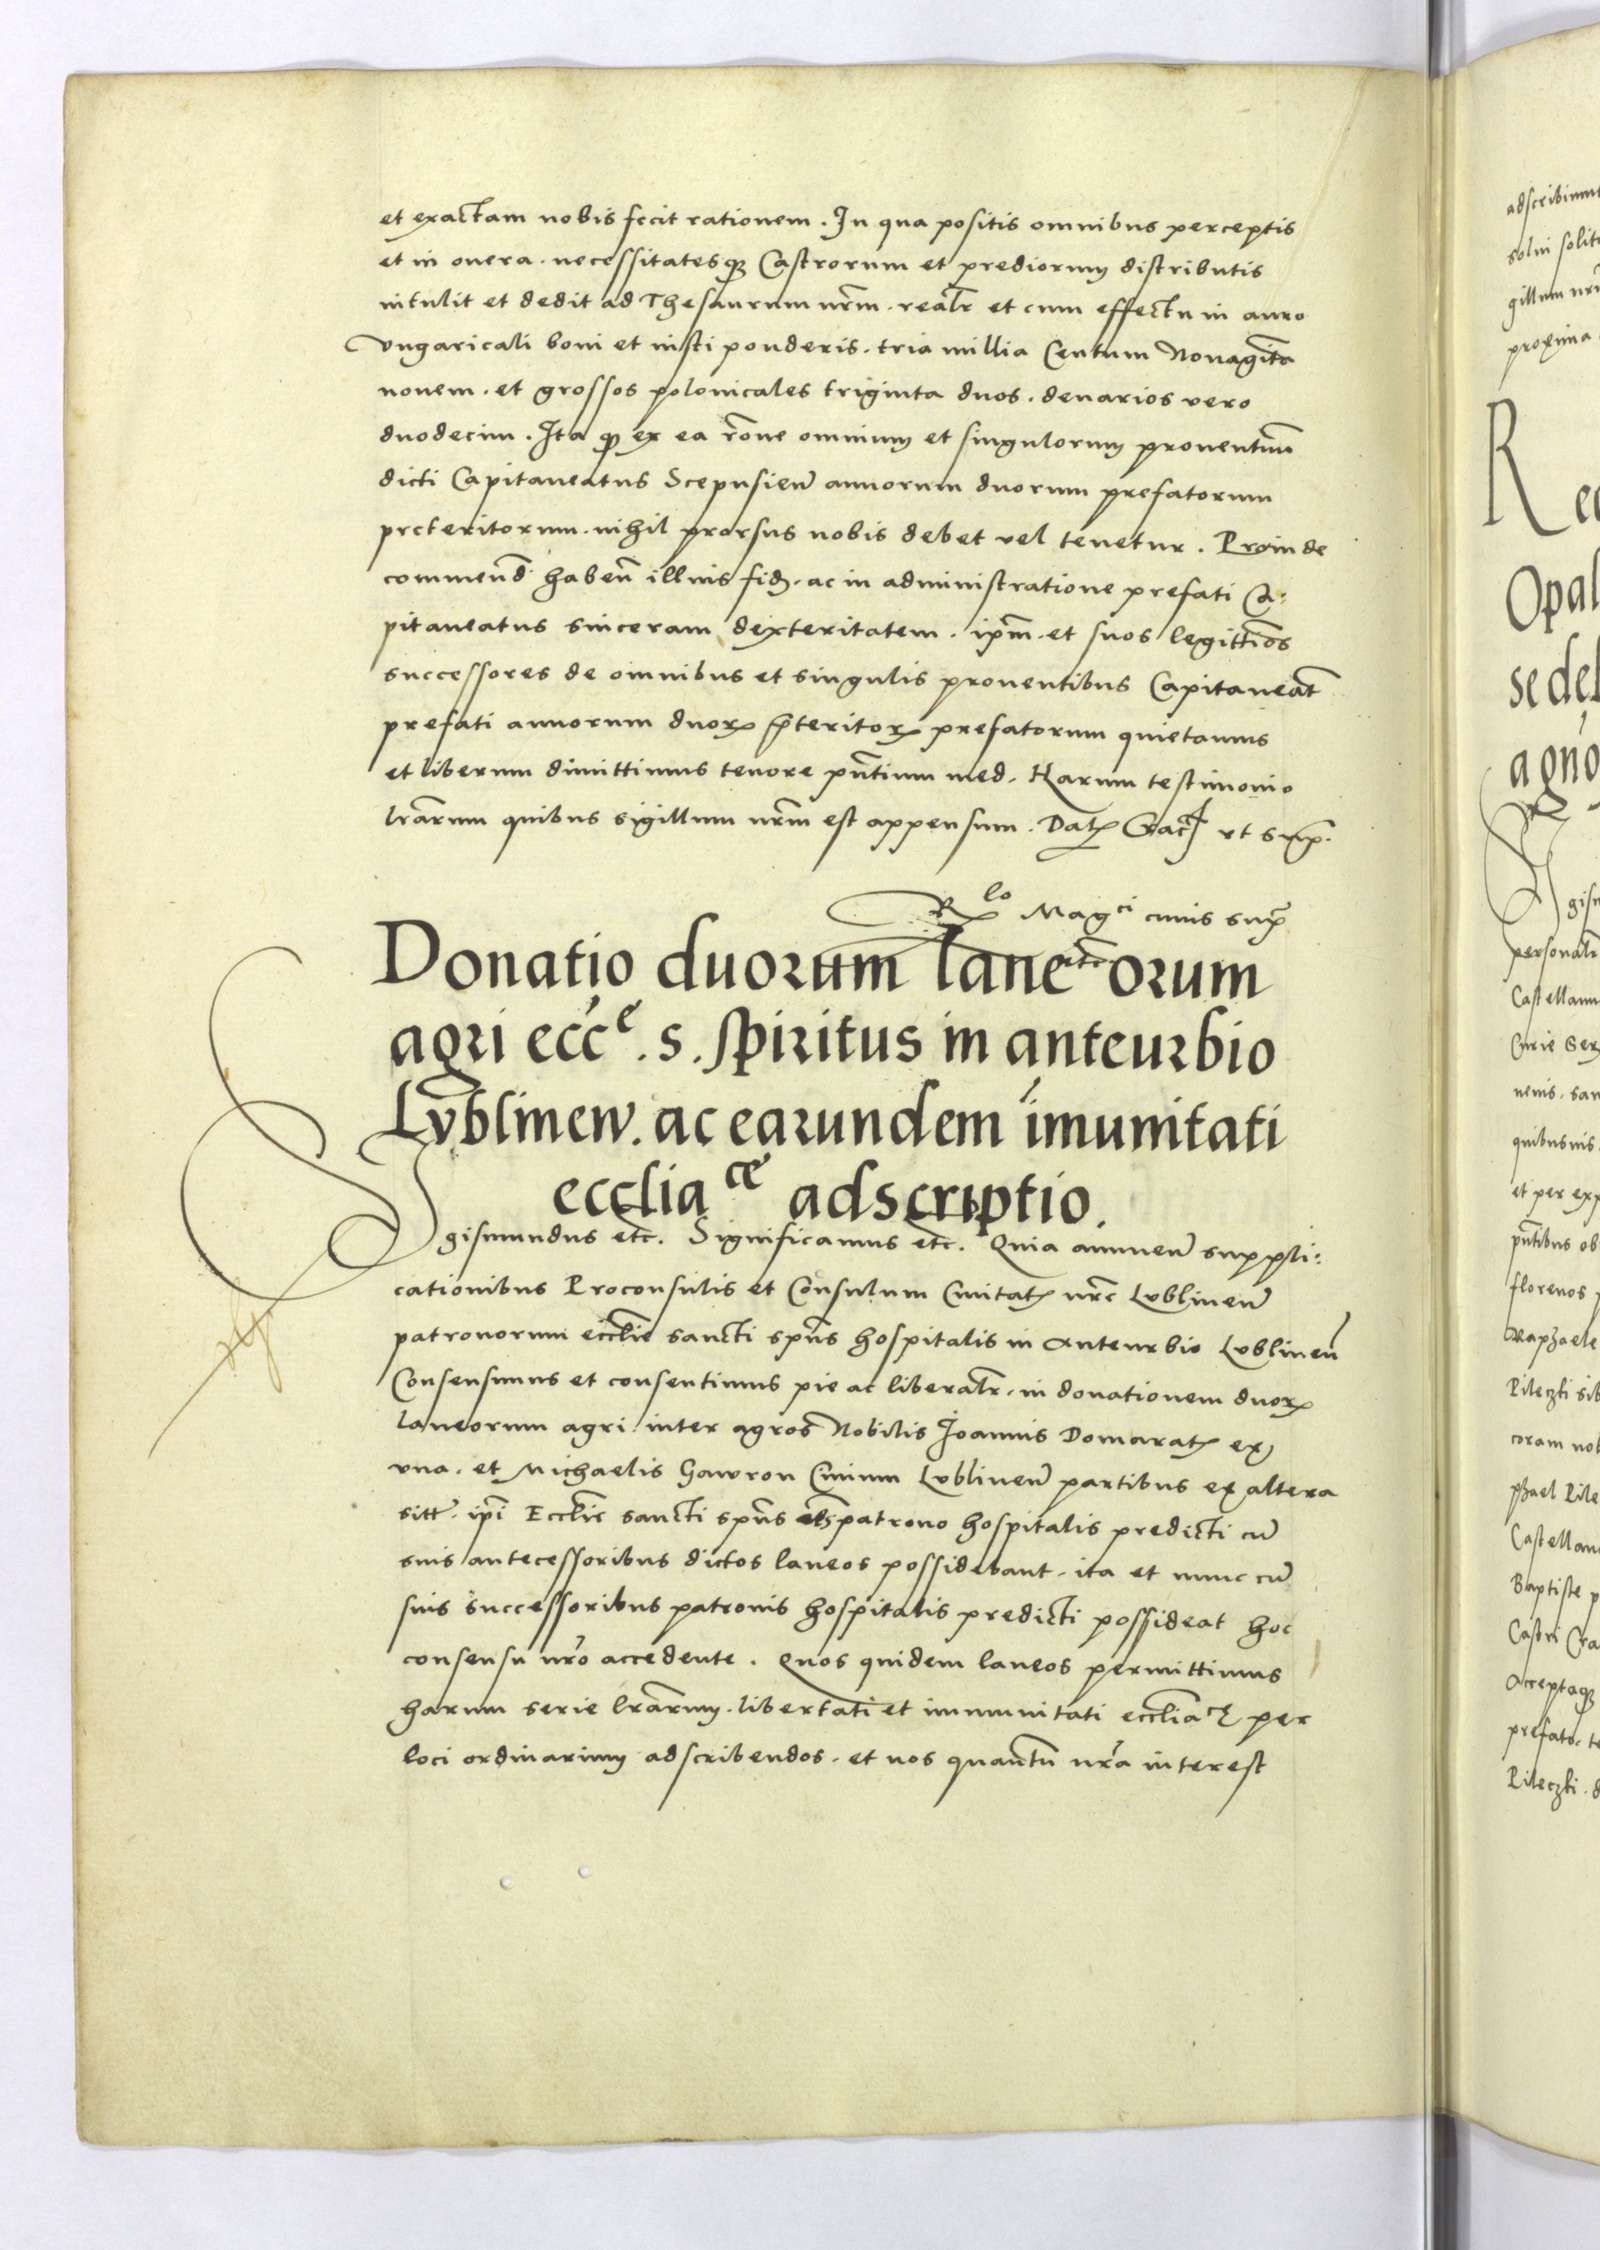 et exactam nobis fecit rationem. In qua positis omnibus perceptis
et in onera. necessitatesqꝫ Castrorum et prediorum distributis
intulit et dedit ad Thesaurum nr̄m. realr̄ et cum effectu in auro
vngaricali boni et iusti ponderis. tria millia Centum Nonagīta
novem. et grossos polonicales triginta duos. denarios vero
duodecim. Ita qꝫ ex ea r̄one omnium et singulorum proventuū
dicti Capitaneatus Scepusien̄ annorum duorum prefatorum
preteritorum. nihil prorsus nobis debet vel tenetur. Proinde
commend̄ haben̄ illius fid̄. ac in administratione prefati Ca:
pitaneatus sinceram dexteritatem. ip̄m. et suos legittīos
successores de omnibus et singulis proventibus Capitaneat̄
prefati annorum duoꝝ p̄teritoꝝ prefatorum quietamus
et liberum dimittimus tenore pn̄tium med. Harum testimonio
lr̄arum quibus sigillum nr̄m est appensum. Datꝭ Crac̄ vt supꝭ.
Rlo Magci cuius sup̄
Donatio duorum laneorum
agri ecc̄e. s. spiritus in anteurbio
Lvblinen̄. ac earundem īmunitati
ecclia ce adscriptio.
Sgismundus etc. Significamus etc. Quia annuen̄ suppli:
cationibus Proconsulis et Consulum Civitatꝭ nr̄e Lvblinen̄
patronorum eccl̄ie sancti sp̄us hospitalis in Anteurbio Lvblinen̄
Consensimus et consentimus pie ac liberalr̄. in donationem duoꝝ
laneorum agri inter agros Nobilis Ioannis Domaratꝭ ex
vna. et Michaelis Gawron Civium Lvblinen̄ partibus ex altera
sitt̄. ip̄i Eccl̄ie sancti sp̄us patrono hospitalis predicti cū
suis antecessoribus dictos laneos possidebant. ita et nunc cū
suis successoribus patronis hospitalis predicti possideat hoc
consensu nr̄o accedente. Quos quidem laneos permittimus
harum serie lr̄arum. libertati et immunitati eccliace per
loci ordinarium adscribendos. et nos quantū nr̄a interest